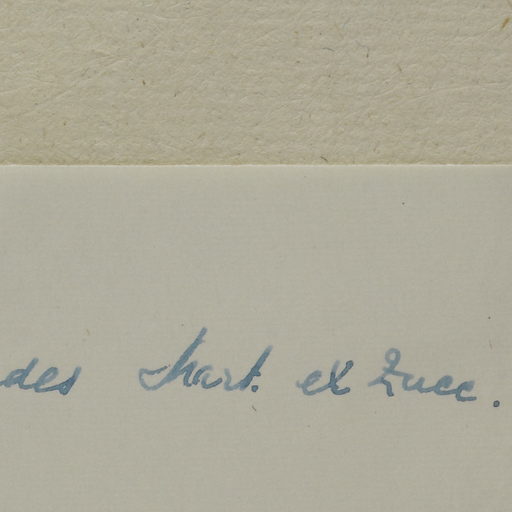 des Mart. ex Zucc.